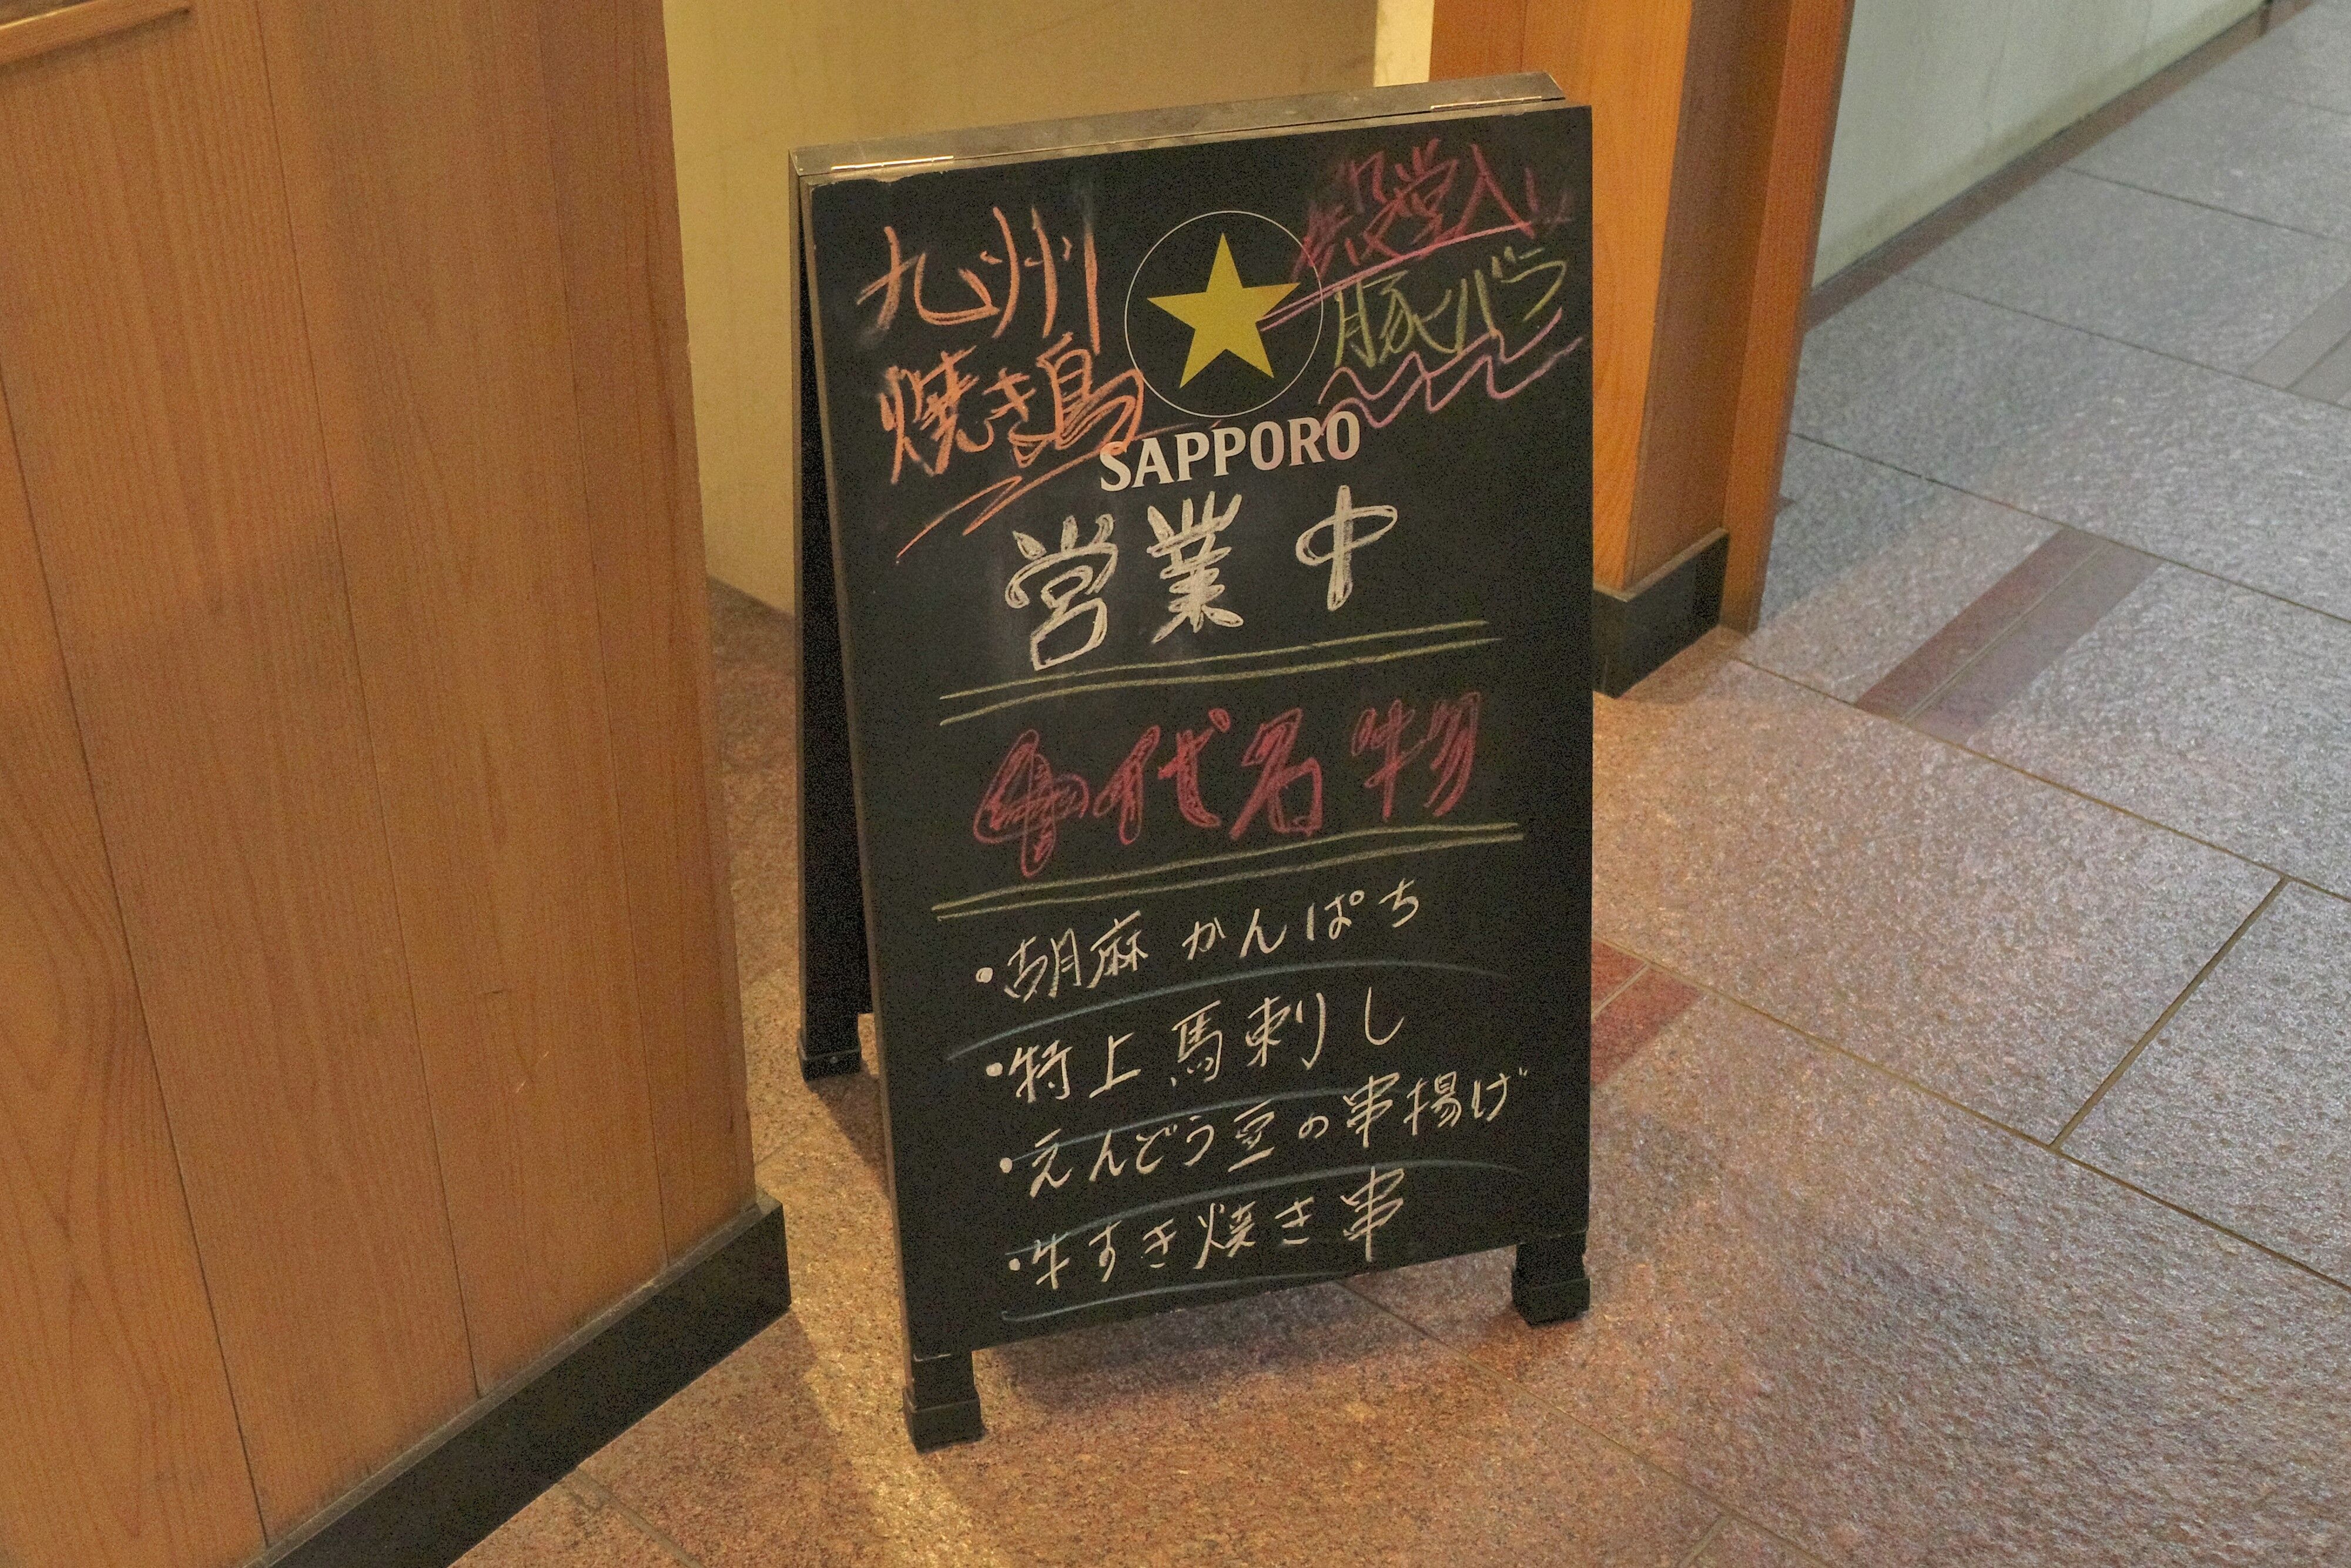 九州
焼き鳥
殿堂入り
豚バラ
SAPPORO
営業中
千代名物
・胡麻かんぱち
・特上馬刺し
・えんどう豆の串揚げ
・牛すき焼き串